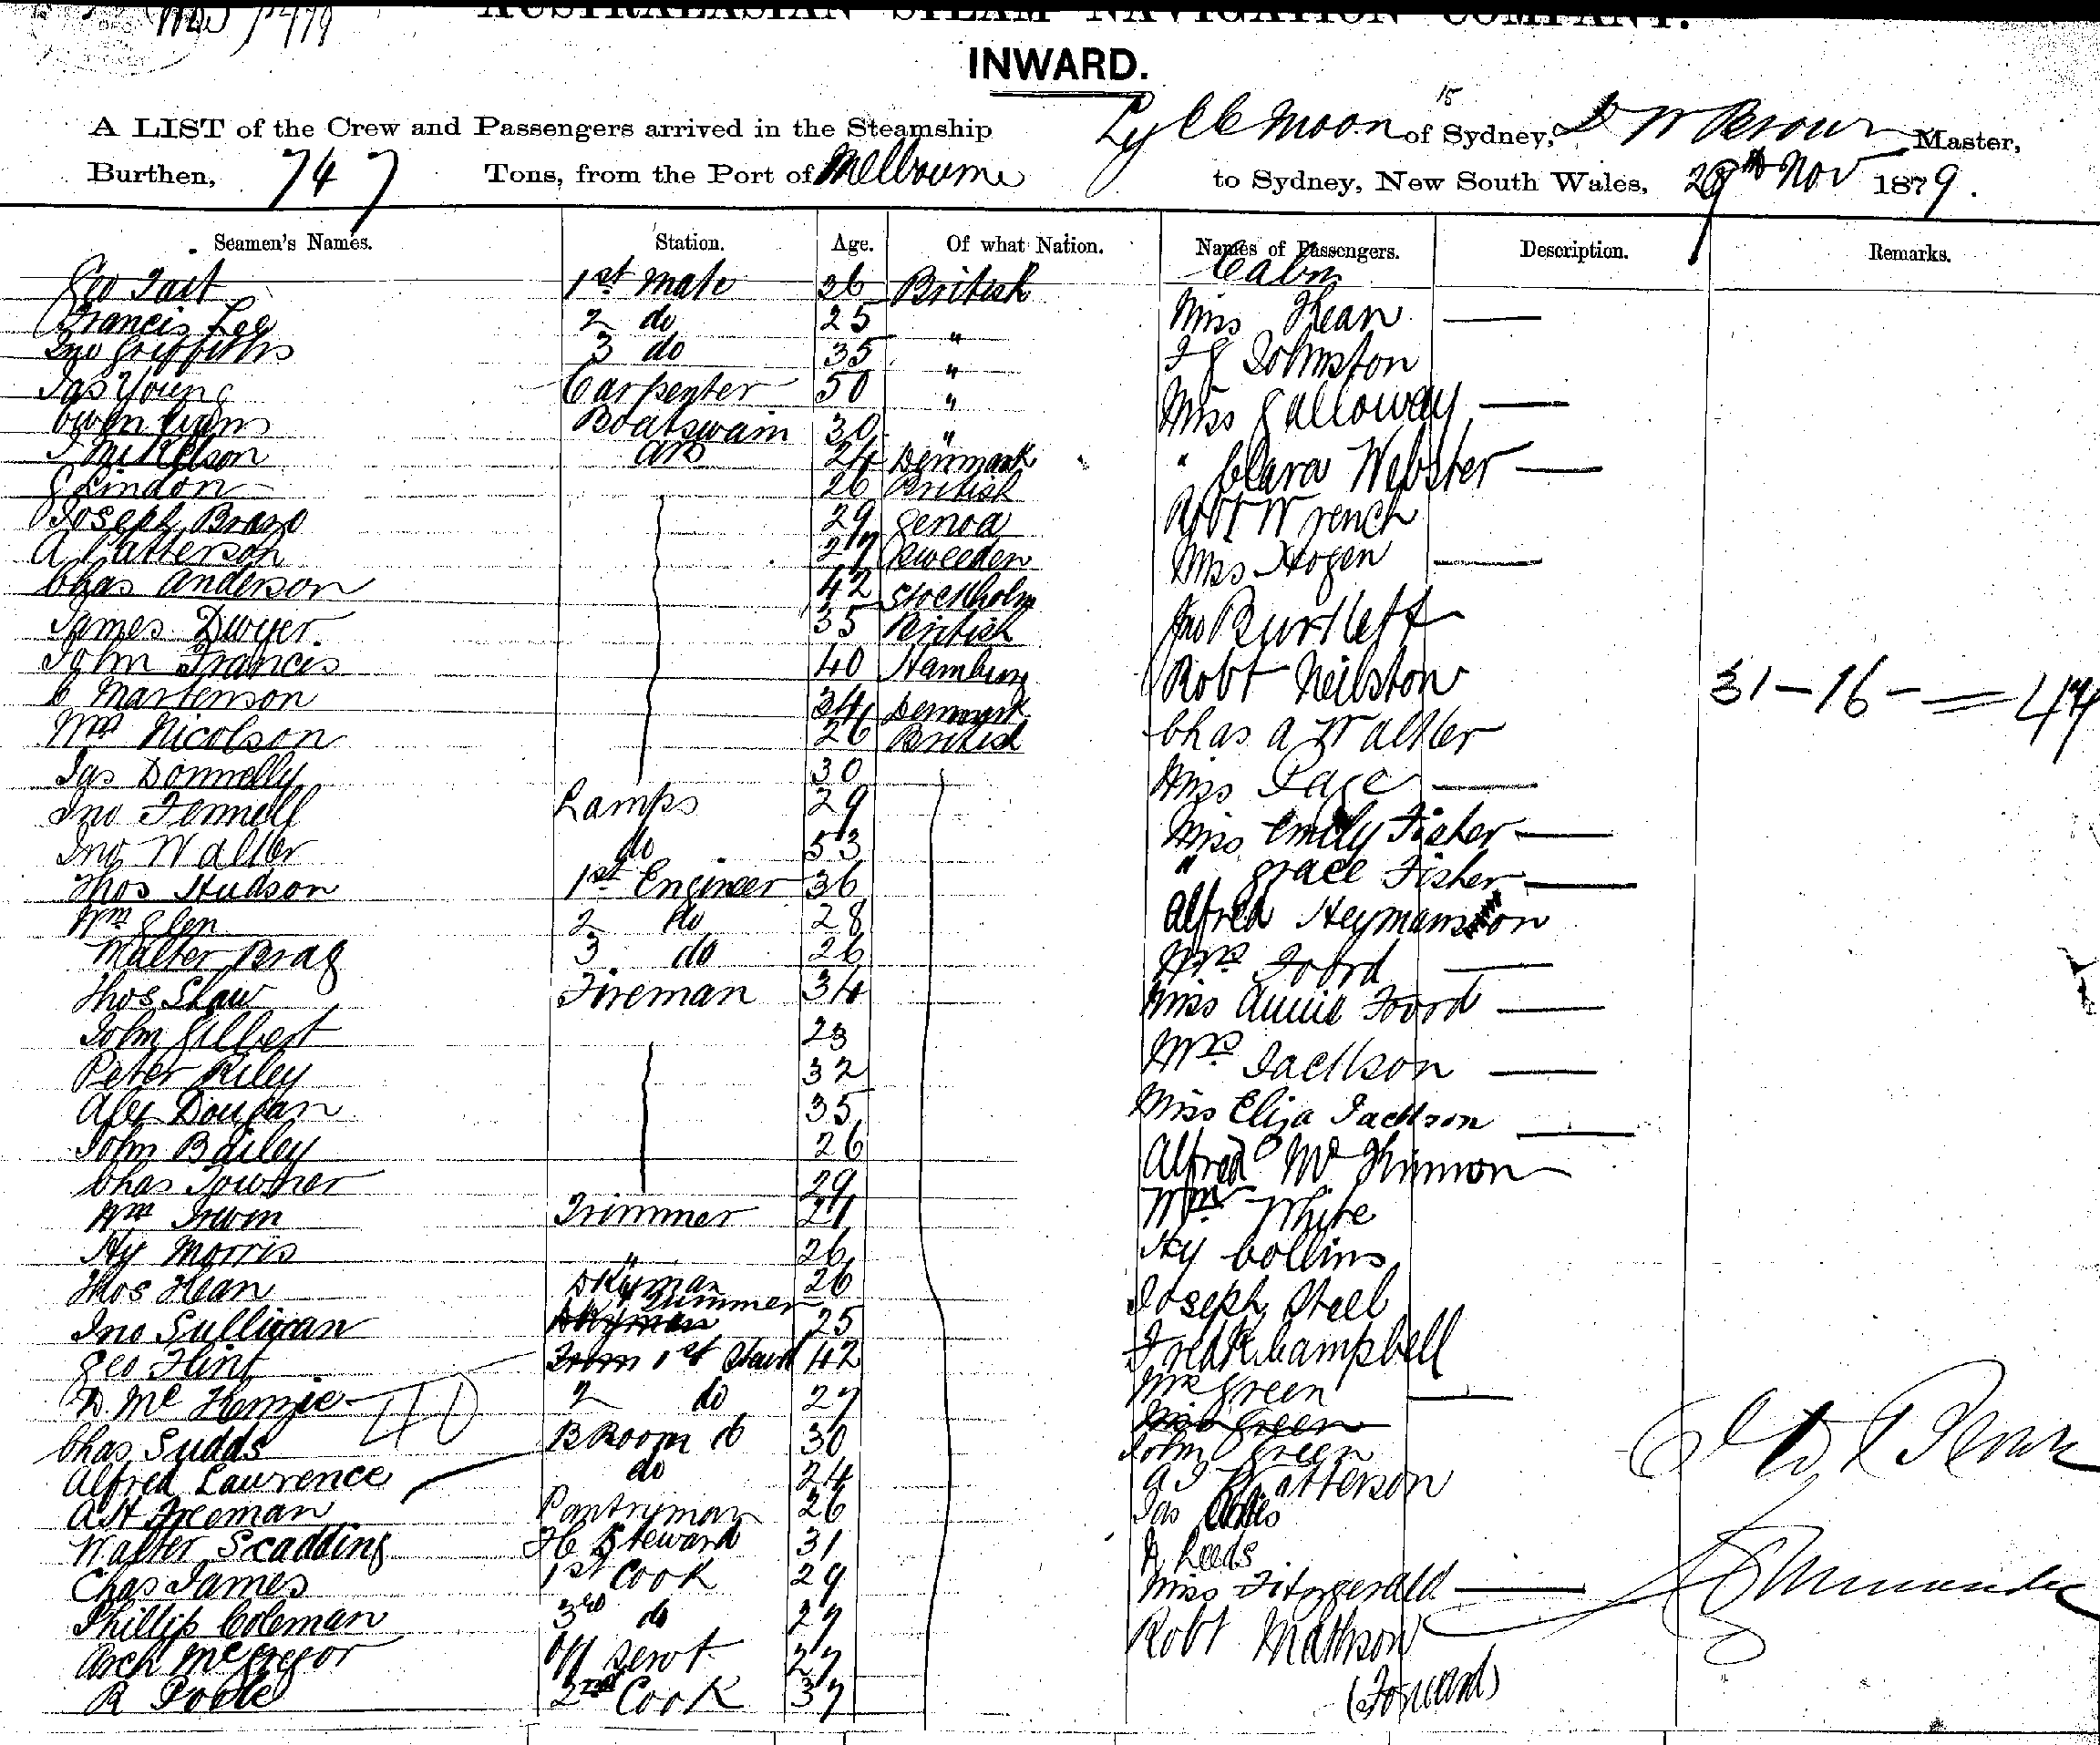 AUSTRALASIAN STEAM NAVIGATION COMPANY.
INWARD.
15
A LIST of the Crew and Passengers arrived in the Steamship Ly ee Moon of Sydney, D W Brown Master,
Burthen, 747 Tons, from the Port of Melbourne to Sydney, New South Wales, 29th Nov 1879.
Seamen's Names. Station. Age. Of what Nation. Names of Passengers. Description. Remarks.
Cabin
Geo Tait 1st Mate 36 British
Francis Lee 2 do 25 " Miss Kean —
Jno Griffiths 3 do 35 " Johnston
Jas Young Carpenter 50 " Miss Galloway —
Owen Boatswain 30 "
J Mikelson AB 24 Denmark " Clara Webster —
G Lindon 26 British
Joseph Bravo 29 Genoa Robt Wrench
A Patterson 27 Sweeden Miss Hogen —
Chas Anderson 42 Stockholm
James Dwyer 35 British Jno Burtlett
John Francis 40 Hamburg Robt Neilston
C Martenson 34 Denmark 31 - 16 - = 47
Wm Nicolson 26 British Chas A Walker
Jas Donnelly 30 Miss Page —
Jno Fennell Lamps 29
Jno Walker do 53 Miss Emily Fisher —
Thos Hudson 1st Engineer 36 " Grace Fisher —
Wm Glen 2 do 28 Alfred Heymanson
Walter Brag 3 do 26 Mrs Foord —
Thos Shaw Fireman 34 Miss Annie Foord —
John Gilbert 23
Peter Riley 32 Mrs Jackson —
Alex Dougan 35 Miss Eliza Jackson —
John Bailey 26 Alfred McKinnon
Chas Towner 29
Wm Irwin Trimmer 21 Wm White
Hy Morris " 26 Hy Collins
Thos Kean Dkyman 26 Joseph Steel
Jno Sullivan Trimmer 25
Geo Flint 1st Stewd 42 Fredk Campbell
D McKenzie 2 do 27 Mrs Green —
40
Miss Green
Chas Sudds B Room 30 John Green
Alfred Lawrence do 24 Patterson
A H Freeman Pantryman 26 Jas
Walter Scadding F C Steward 31 Leeds
Chas James 1st Cook 29 Miss Fitzgerald —
Phillip Coleman 3rd do 27 Robt Mathson
Arch McGregor Off Servt 27
R Poole 2nd Cook 37 (Forward)